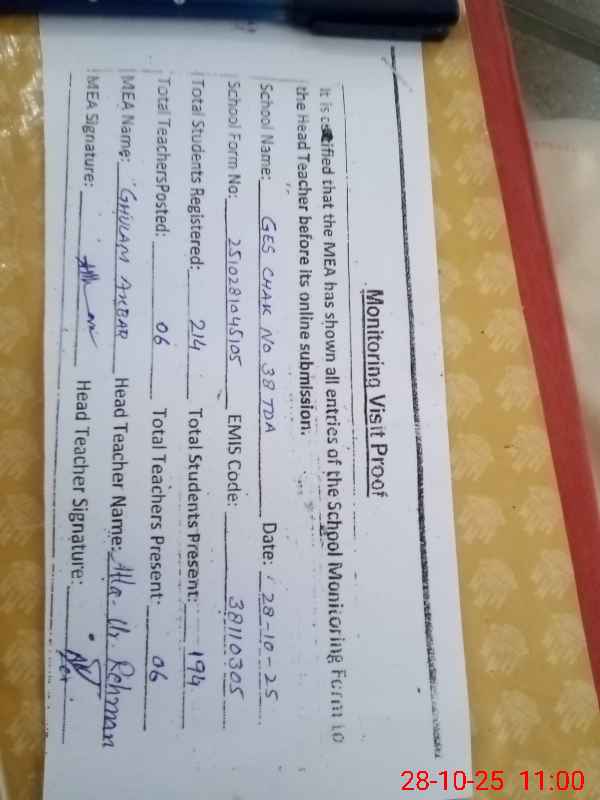 Monitoring Visit Proof
It is certified that the MEA has shown all entries of the School Monitoring Form to
the Head Teacher before its online submission.
School Name: GES CHAK NO 38 TDA Date: 28-10-25
School Form No: 2510281045105 EMIS Code: 38110305
Total Students Registered: 214 Total Students Present: 194
Total TeachersPosted: 06 Total Teachers Present: 06
MEA Name: GHULAM AKBAR Head Teacher Name: Atta-Ur-Rehman
MEA Signature: Head Teacher Signature:
28-10-25 11:00